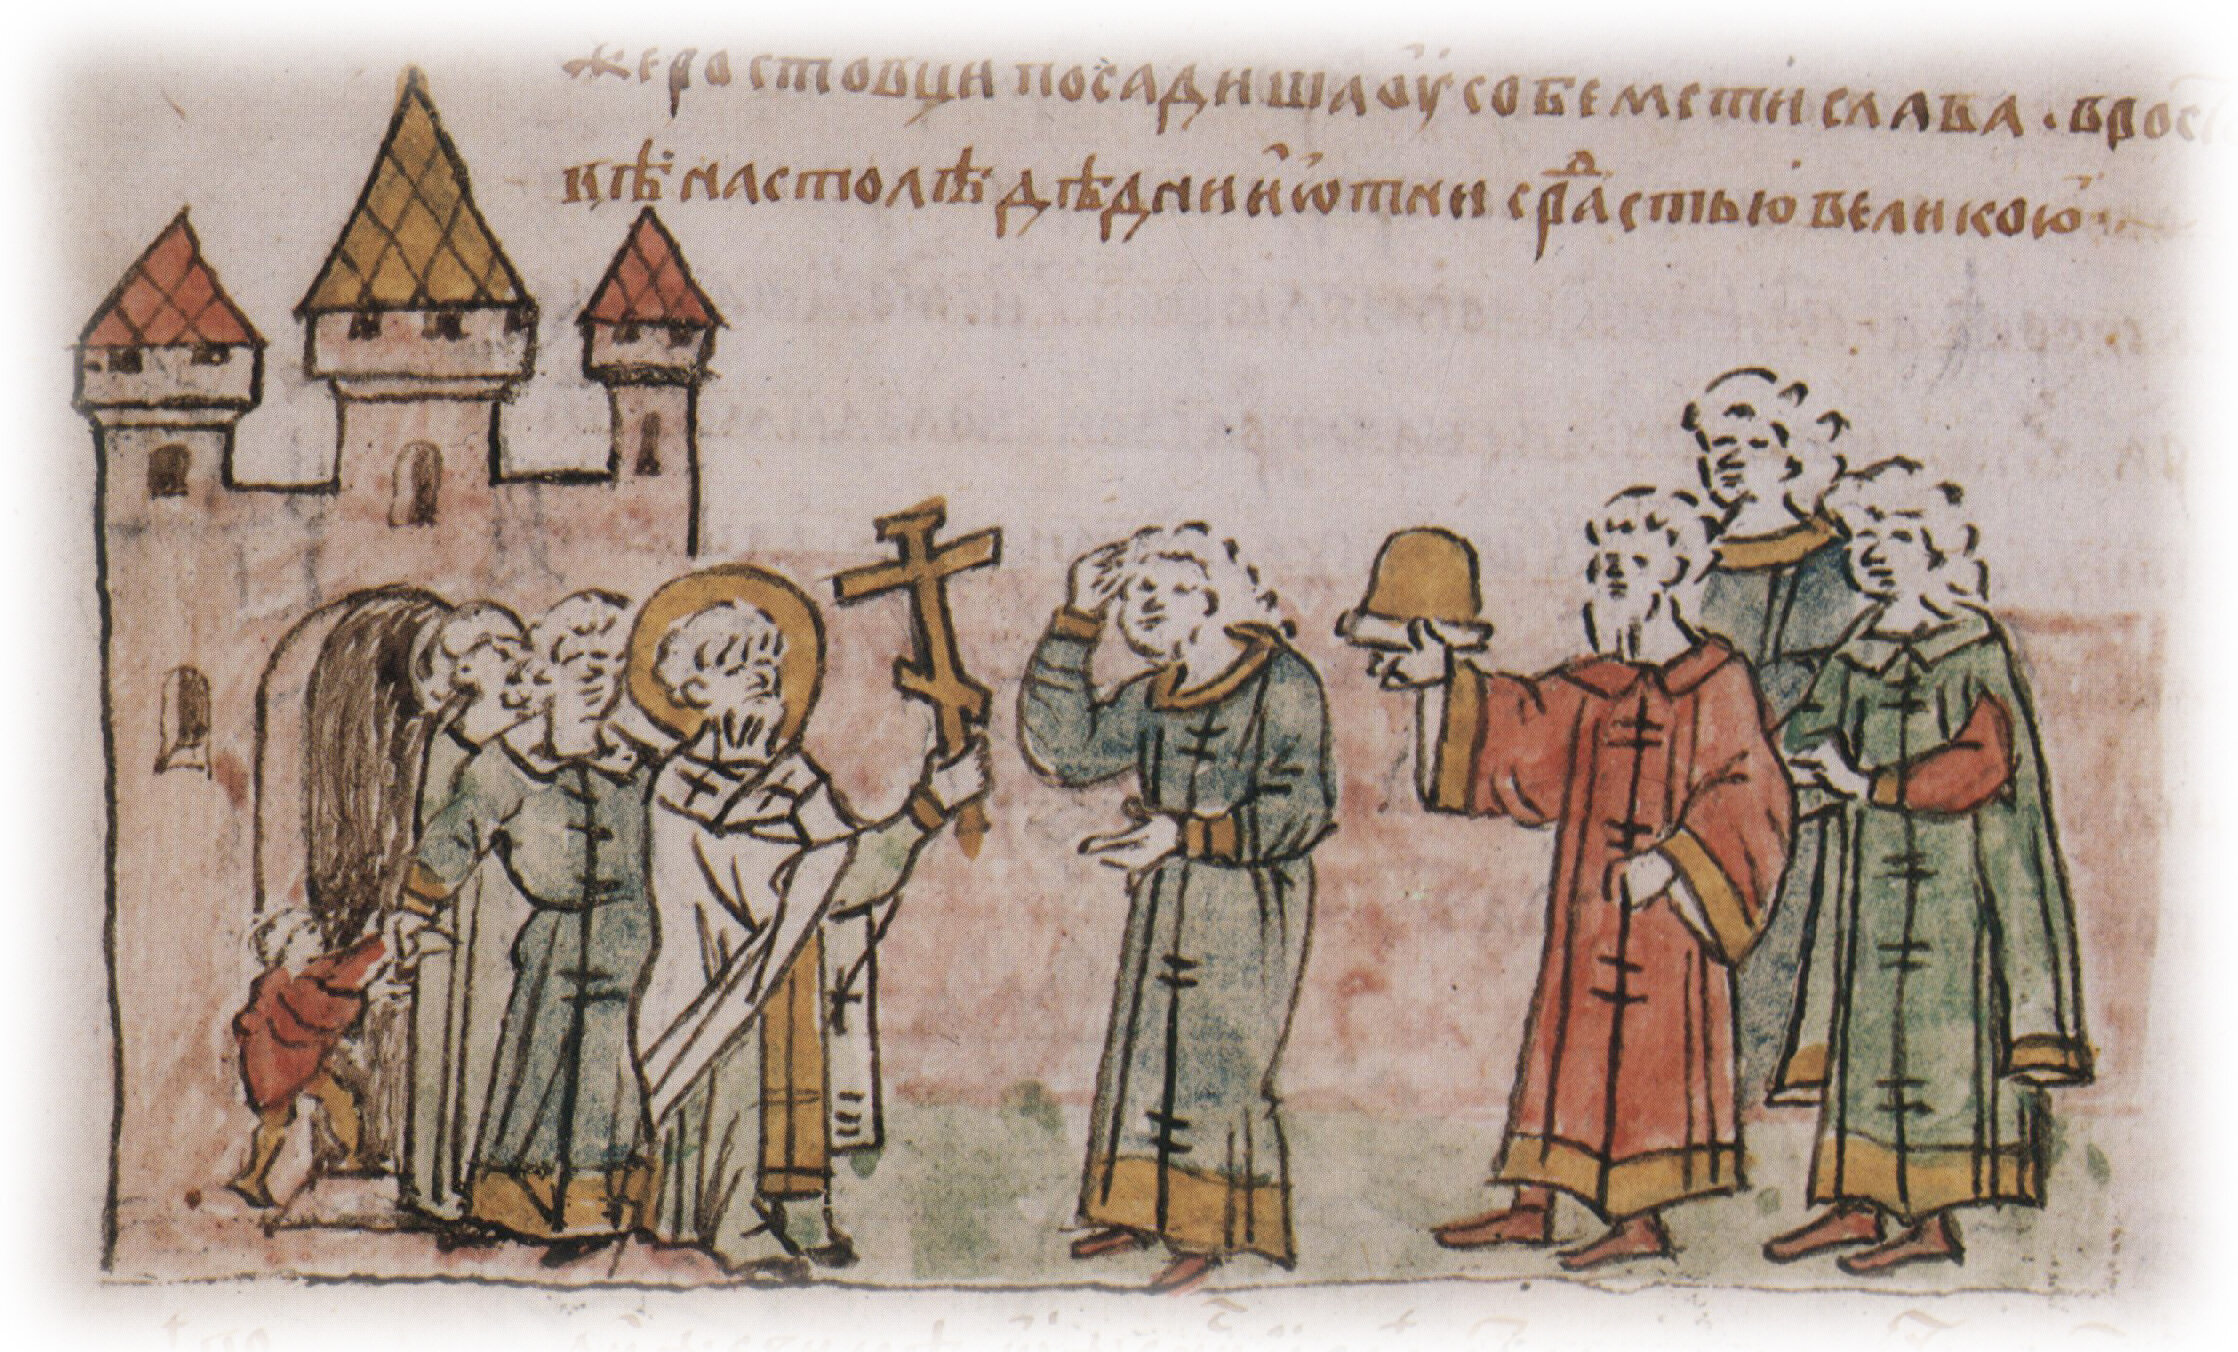 жеростовци посадиша оу собе мстислава · в рос
вѣ на столѣ дѣдни и ѡтни с рⷣаастью великою ·